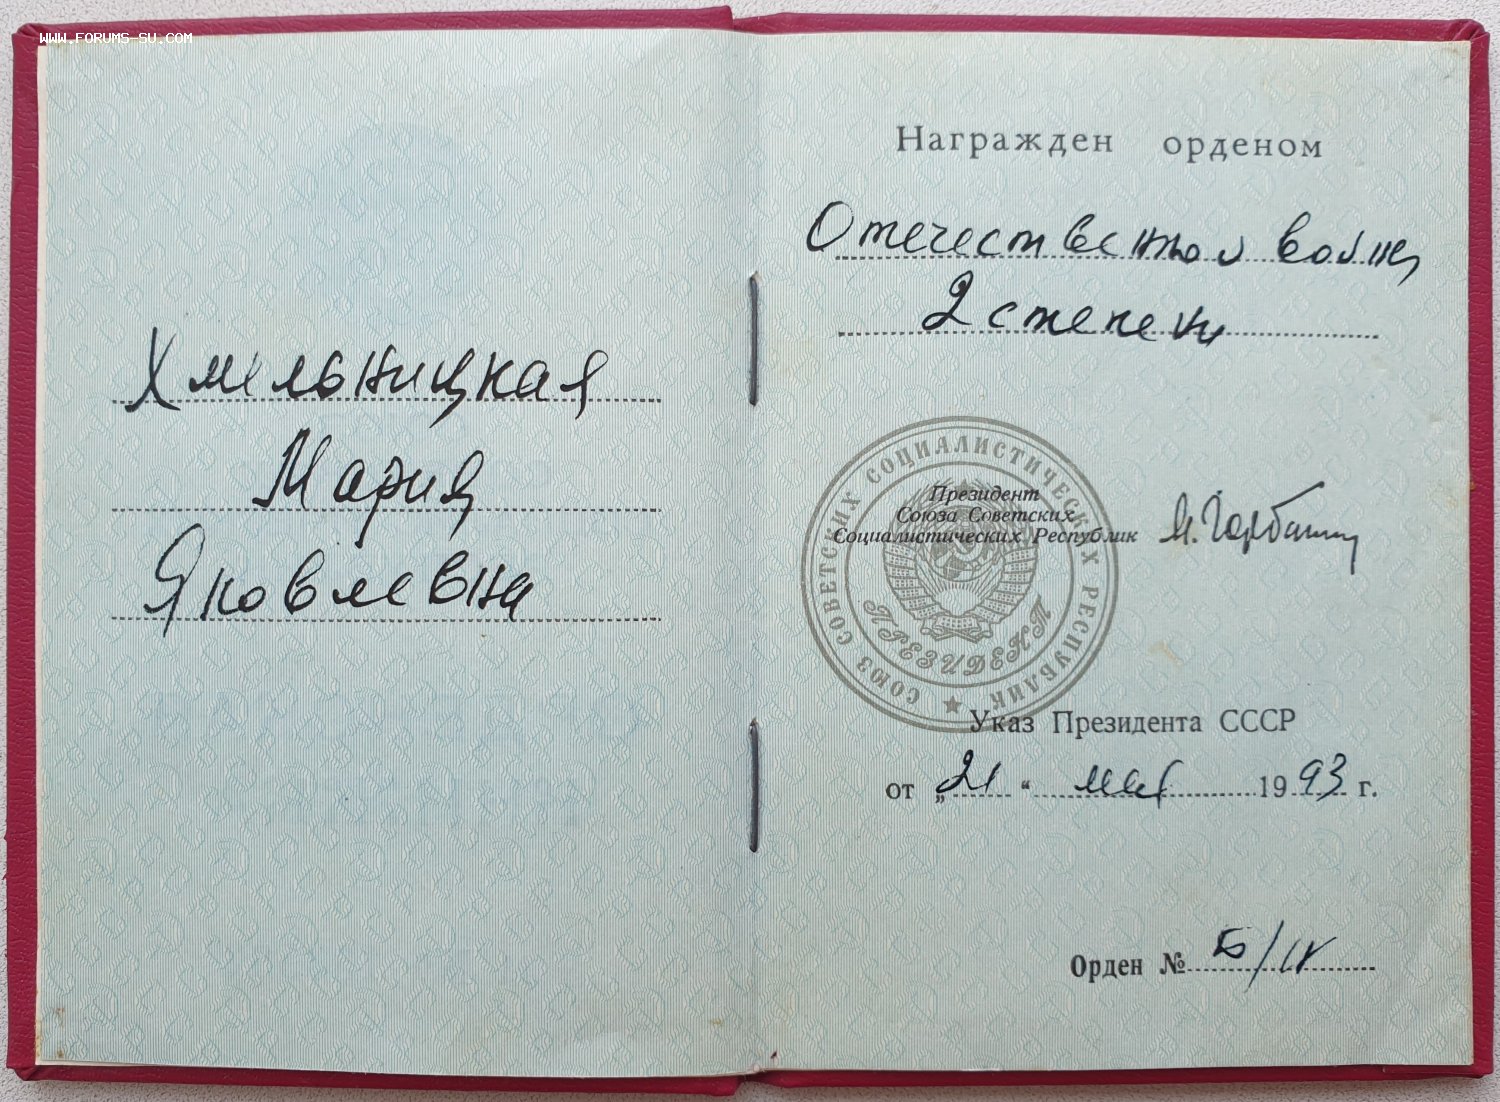 WWW.FORUMS-SU.COM
Хмельницкая
Мария
Яковлевна
Награжден орденом
Отечественной войны
2 степени
СОЮЗ СОВЕТСКИХ СОЦИАЛИСТИЧЕСКИХ РЕСПУБЛИК
Президент
Союза Советских
Социалистических Республик М. Горбачев
ПРЕЗИДЕНТ
Указ Президента СССР
от „21“ мая 1993 г.
Орден № Б/н